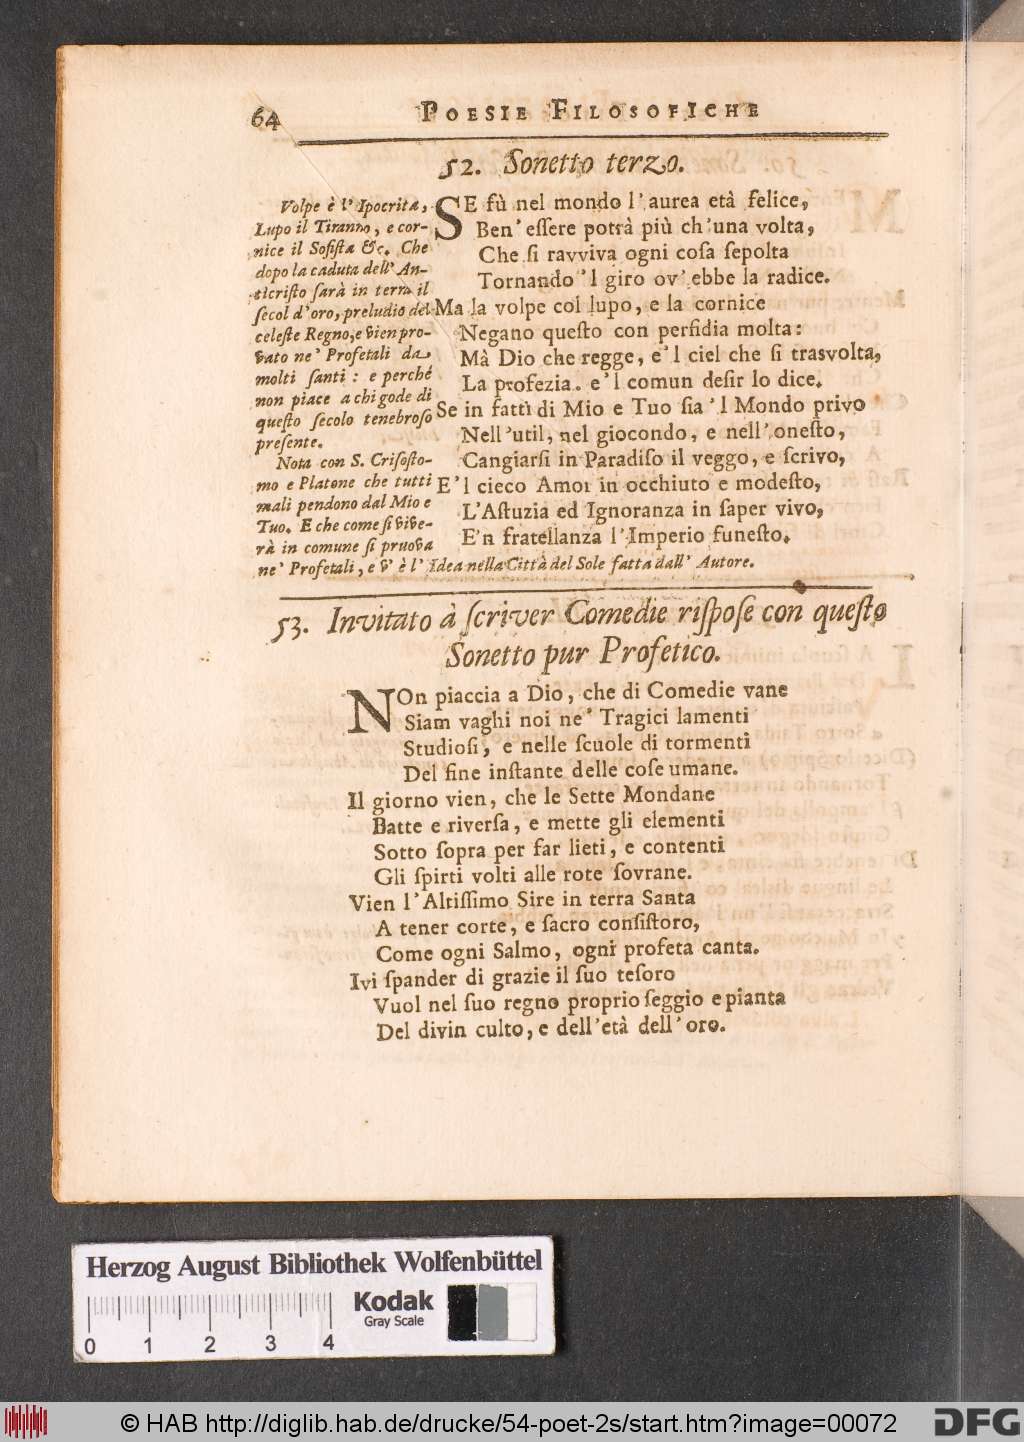 64
POESIE FILOSOFICHE
52. Sonetto terzo.
Volpe è l' Ipocrita,
Lupo il Tiranno, e cor-
nice il Sofiſta &c. Che
dopo la caduta dell' An-
ticriſto ſarà in terra il
ſecol d'oro, preludio del
celeſte Regno, e vien pro-
vato ne' Profetali da
molti ſanti: e perché
non piace a chi gode di
queſto ſecolo tenebroſo
preſente.
Nota con S. Criſoſto-
mo e Platone che tutti
mali pendono dal Mio e
Tuo. E che come ſi vive-
rà in comune ſi pruova
ne' Profetali, e v' è l' Idea nella Città del Sole fatta dall' Autore.
SE fù nel mondo l'aurea età felice,
Ben' eſſere potrà più ch'una volta,
Che ſi ravviva ogni coſa ſepolta
Tornando 'l giro ov' ebbe la radice.
Ma la volpe col lupo, e la cornice
Negano queſto con perfidia molta:
Mà Dio che regge, e'l ciel che ſi trasvolta,
La profezia. e'l comun deſir lo dice.
Se in fatti di Mio e Tuo ſia 'l Mondo privo
Nell'util, nel giocondo, e nell'oneſto,
Cangiarſi in Paradiſo il veggo, e ſcrivo,
E'l cieco Amor in occhiuto e modeſto,
L'Aſtuzia ed Ignoranza in ſaper vivo,
E'n fratellanza l'Imperio funeſto.
53. Invitato à ſcriver Comedie riſpoſe con queſto
Sonetto pur Profetico.
NOn piaccia a Dio, che di Comedie vane
Siam vaghi noi ne' Tragici lamenti
Studioſi, e nelle ſcuole di tormenti
Del fine inſtante delle coſe umane.
Il giorno vien, che le Sette Mondane
Batte e riverſa, e mette gli elementi
Sotto ſopra per far lieti, e contenti
Gli ſpirti volti alle rote ſovrane.
Vien l'Altiſſimo Sire in terra Santa
A tener corte, e ſacro conſiſtoro,
Come ogni Salmo, ogni profeta canta.
Ivi ſpander di grazie il ſuo teſoro
Vuol nel ſuo regno proprio ſeggio e pianta
Del divin culto, e dell'età dell' oro.
Herzog August Bibliothek Wolfenbüttel
0 1 2 3 4
Kodak
Gray Scale
© HAB http://diglib.hab.de/drucke/54-poet-2s/start.htm?image=00072
DFG